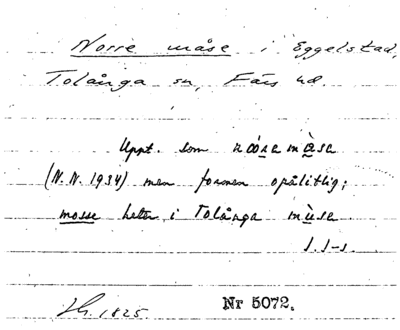 Norre måse i Eggelstad,
Tolånga sn, Färs hd.
Uppt. som nǫ́ra mą̀sa
(N.N. 1934) men formen opålitlig;
mosse heter i Tolånga mùsa.
I. I-n.
1825.
Nr 5072.